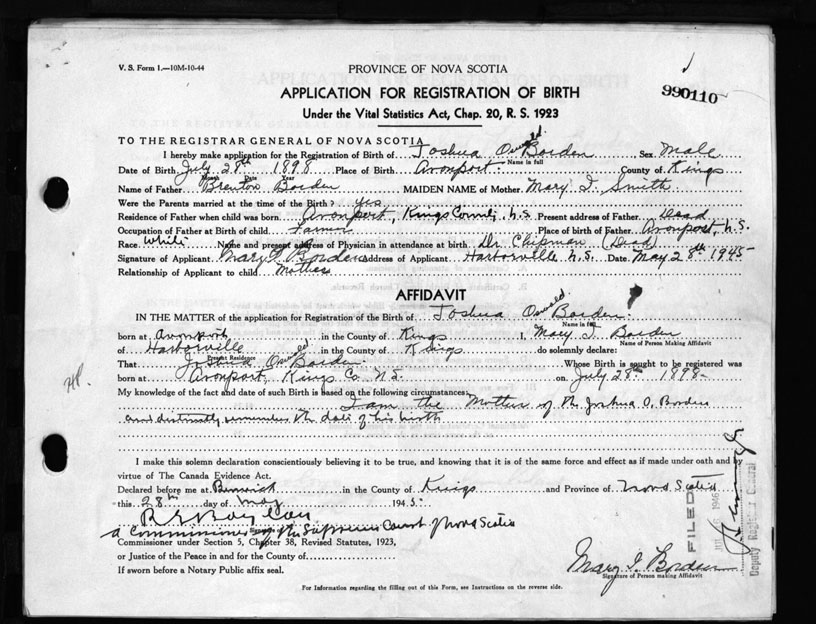 V. S. Form 1.—10M-10-44
PROVINCE OF NOVA SCOTIA
990110
APPLICATION FOR REGISTRATION OF BIRTH
Under the Vital Statistics Act, Chap. 20, R. S. 1923
TO THE REGISTRAR GENERAL OF NOVA SCOTIA
I hereby make application for the Registration of Birth of Joshua Oswald Borden Sex Male
Name in full
Date of Birth July 28th 1898 Place of Birth Avonport County of Kings
Month Day Year
Name of Father Brenton Borden MAIDEN NAME of Mother Mary I. Smith
Were the Parents married at the time of the Birth? yes
Residence of Father when child was born Avonport, Kings County, N.S. Present address of Father Dead
Occupation of Father at Birth of child Farmer Place of birth of Father Avonport, N.S.
Race White Name and present address of Physician in attendance at birth Dr Chipman (Dead)
Signature of Applicant Mary I. Borden Address of Applicant Harborville N.S. Date May 28th 1945
Relationship of Applicant to child Mother
AFFIDAVIT
IN THE MATTER of the application for Registration of the Birth of Joshua Oswald Borden
Name in full
born at Avonport in the County of Kings I, Mary I. Borden
Name of Person Making Affidavit
of Harborville in the County of Kings do solemnly declare:
Present Residence
That Joshua Oswald Borden Whose Birth is sought to be registered was
born at Avonport, Kings Co N.S. on July 28th 1898
My knowledge of the fact and date of such Birth is based on the following circumstances:
I am the Mother of the Joshua O. Borden
and distinctly remember the date of his birth
I make this solemn declaration conscientiously believing it to be true, and knowing that it is of the same force and effect as if made under oath and by
virtue of The Canada Evidence Act.
Declared before me at Berwick in the County of Kings and Province of Nova Scotia
this 28th day of May 1945
a Commissioner of the Supreme Court of Nova Scotia
Commissioner under Section 5, Chapter 38, Revised Statutes, 1923,
or Justice of the Peace in and for the County of
If sworn before a Notary Public affix seal.
Mary I. Borden
Signature of Person making Affidavit
For Information regarding the filling out of this Form, see Instructions on the reverse side.
FILED
1946
Deputy Registrar General